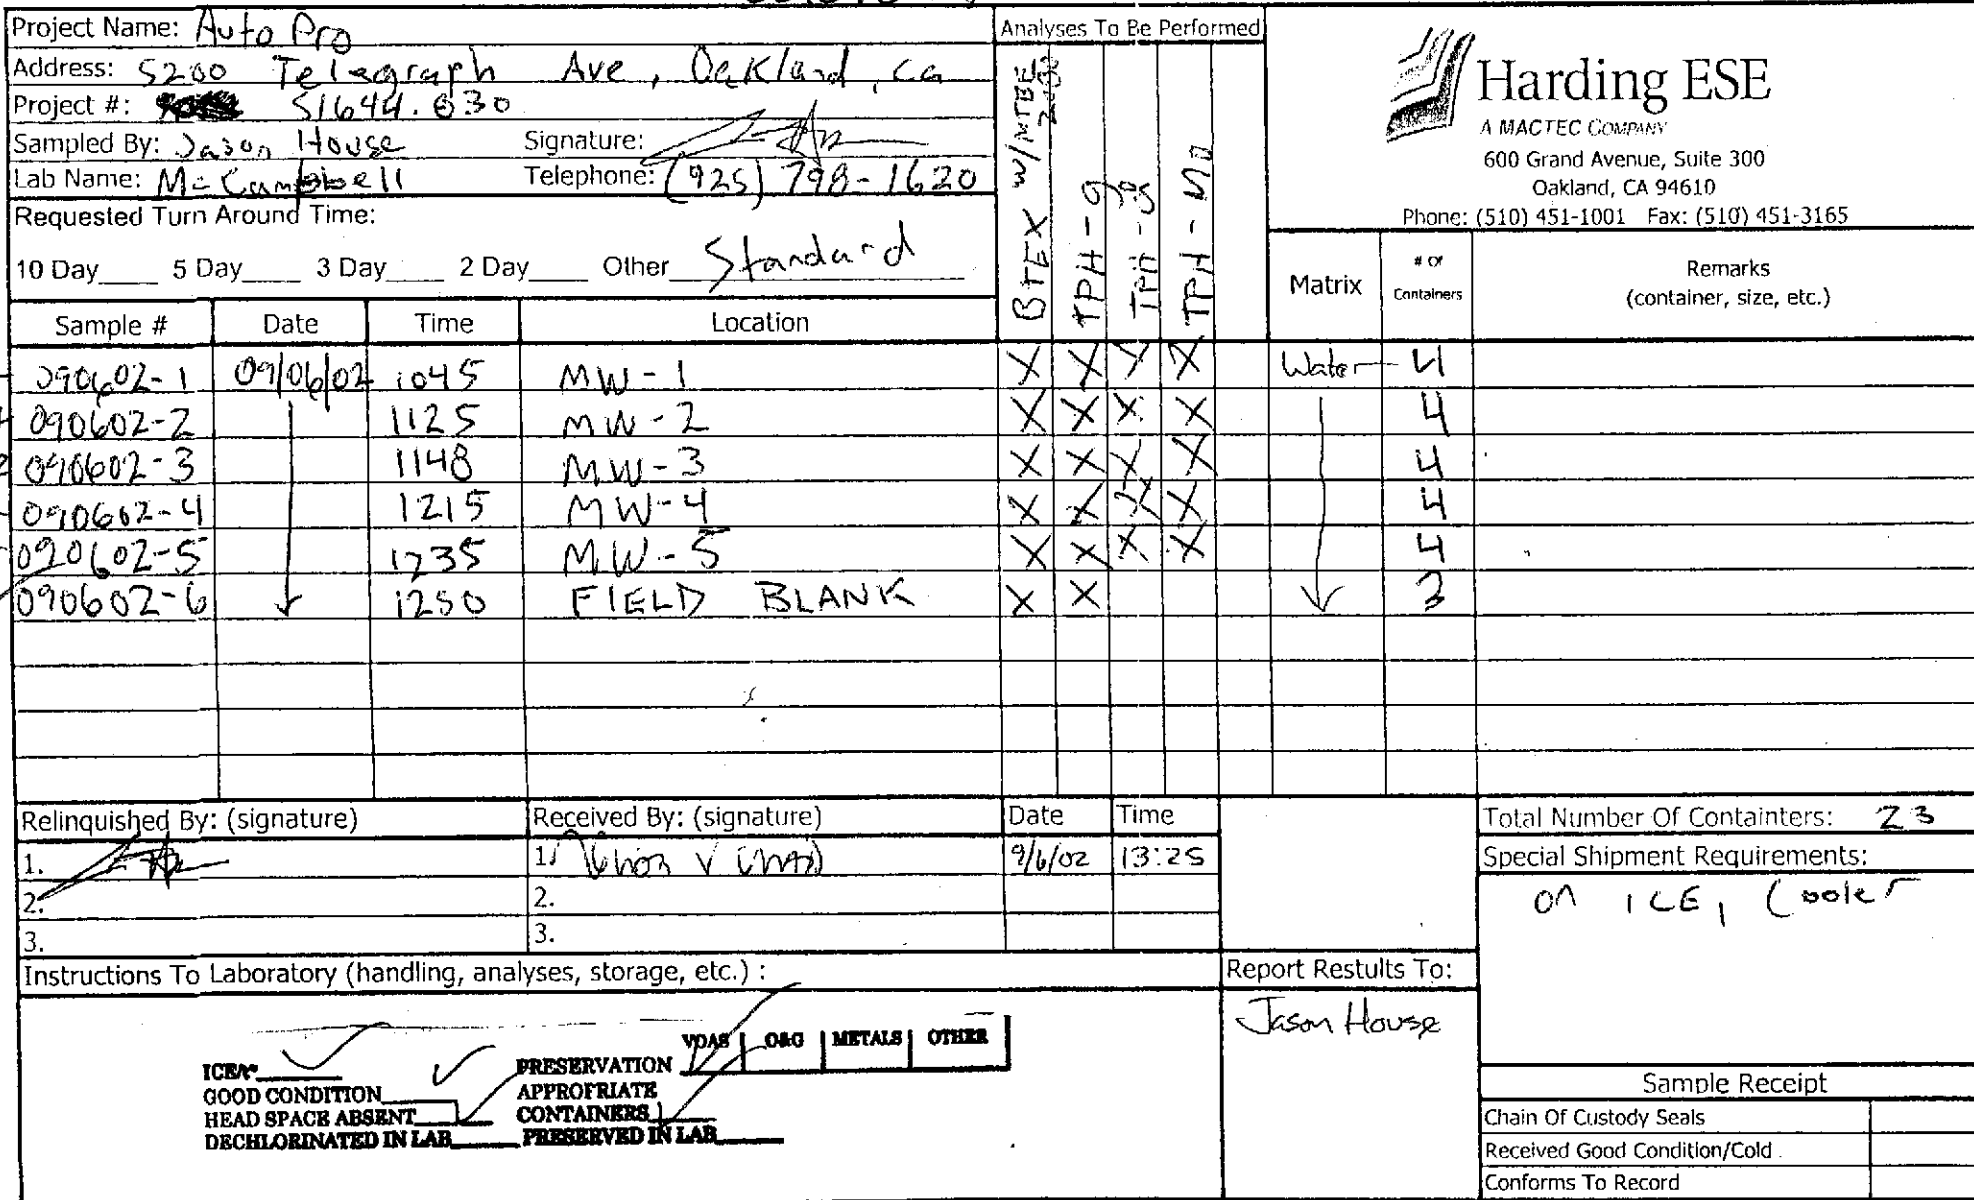 Project Name: Auto Pro
Address: 5200 Telegraph Ave, Oakland, Ca
Project #: 51644.030
Sampled By: Jason House Signature:
Lab Name: McCampbell Telephone: (925) 798-1620
Requested Turn Around Time:
10 Day____ 5 Day____ 3 Day____ 2 Day____ Other Standard
Analyses To Be Performed
BTEX w/MTBE
TPH - g
TPH - d
TPH - Mo
Harding ESE
A MACTEC COMPANY
600 Grand Avenue, Suite 300
Oakland, CA 94610
Phone: (510) 451-1001 Fax: (510) 451-3165
Sample # Date Time Location Matrix # Of Containers Remarks (container, size, etc.)
090602-1 09/06/02 1045 MW-1 X X X X Water 4
090602-2 1125 MW-2 X X X X 4
090602-3 1148 MW-3 X X X X 4
090602-4 1215 MW-4 X X X X 4
090602-5 1235 MW-5 X X X X 4
090602-6 1250 FIELD BLANK X X 3
Relinquished By: (signature) Received By: (signature) Date Time
1. 1. 9/6/02 13:25
2. 2.
3. 3.
Total Number Of Containters: 23
Special Shipment Requirements:
on ICE, Cooler
Instructions To Laboratory (handling, analyses, storage, etc.) :
Report Restults To:
Jason House
VOAS O&G METALS OTHER
ICE/t° PRESERVATION
GOOD CONDITION APPROPRIATE
HEAD SPACE ABSENT CONTAINERS
DECHLORINATED IN LAB PRESERVED IN LAB
Sample Receipt
Chain Of Custody Seals
Received Good Condition/Cold
Conforms To Record